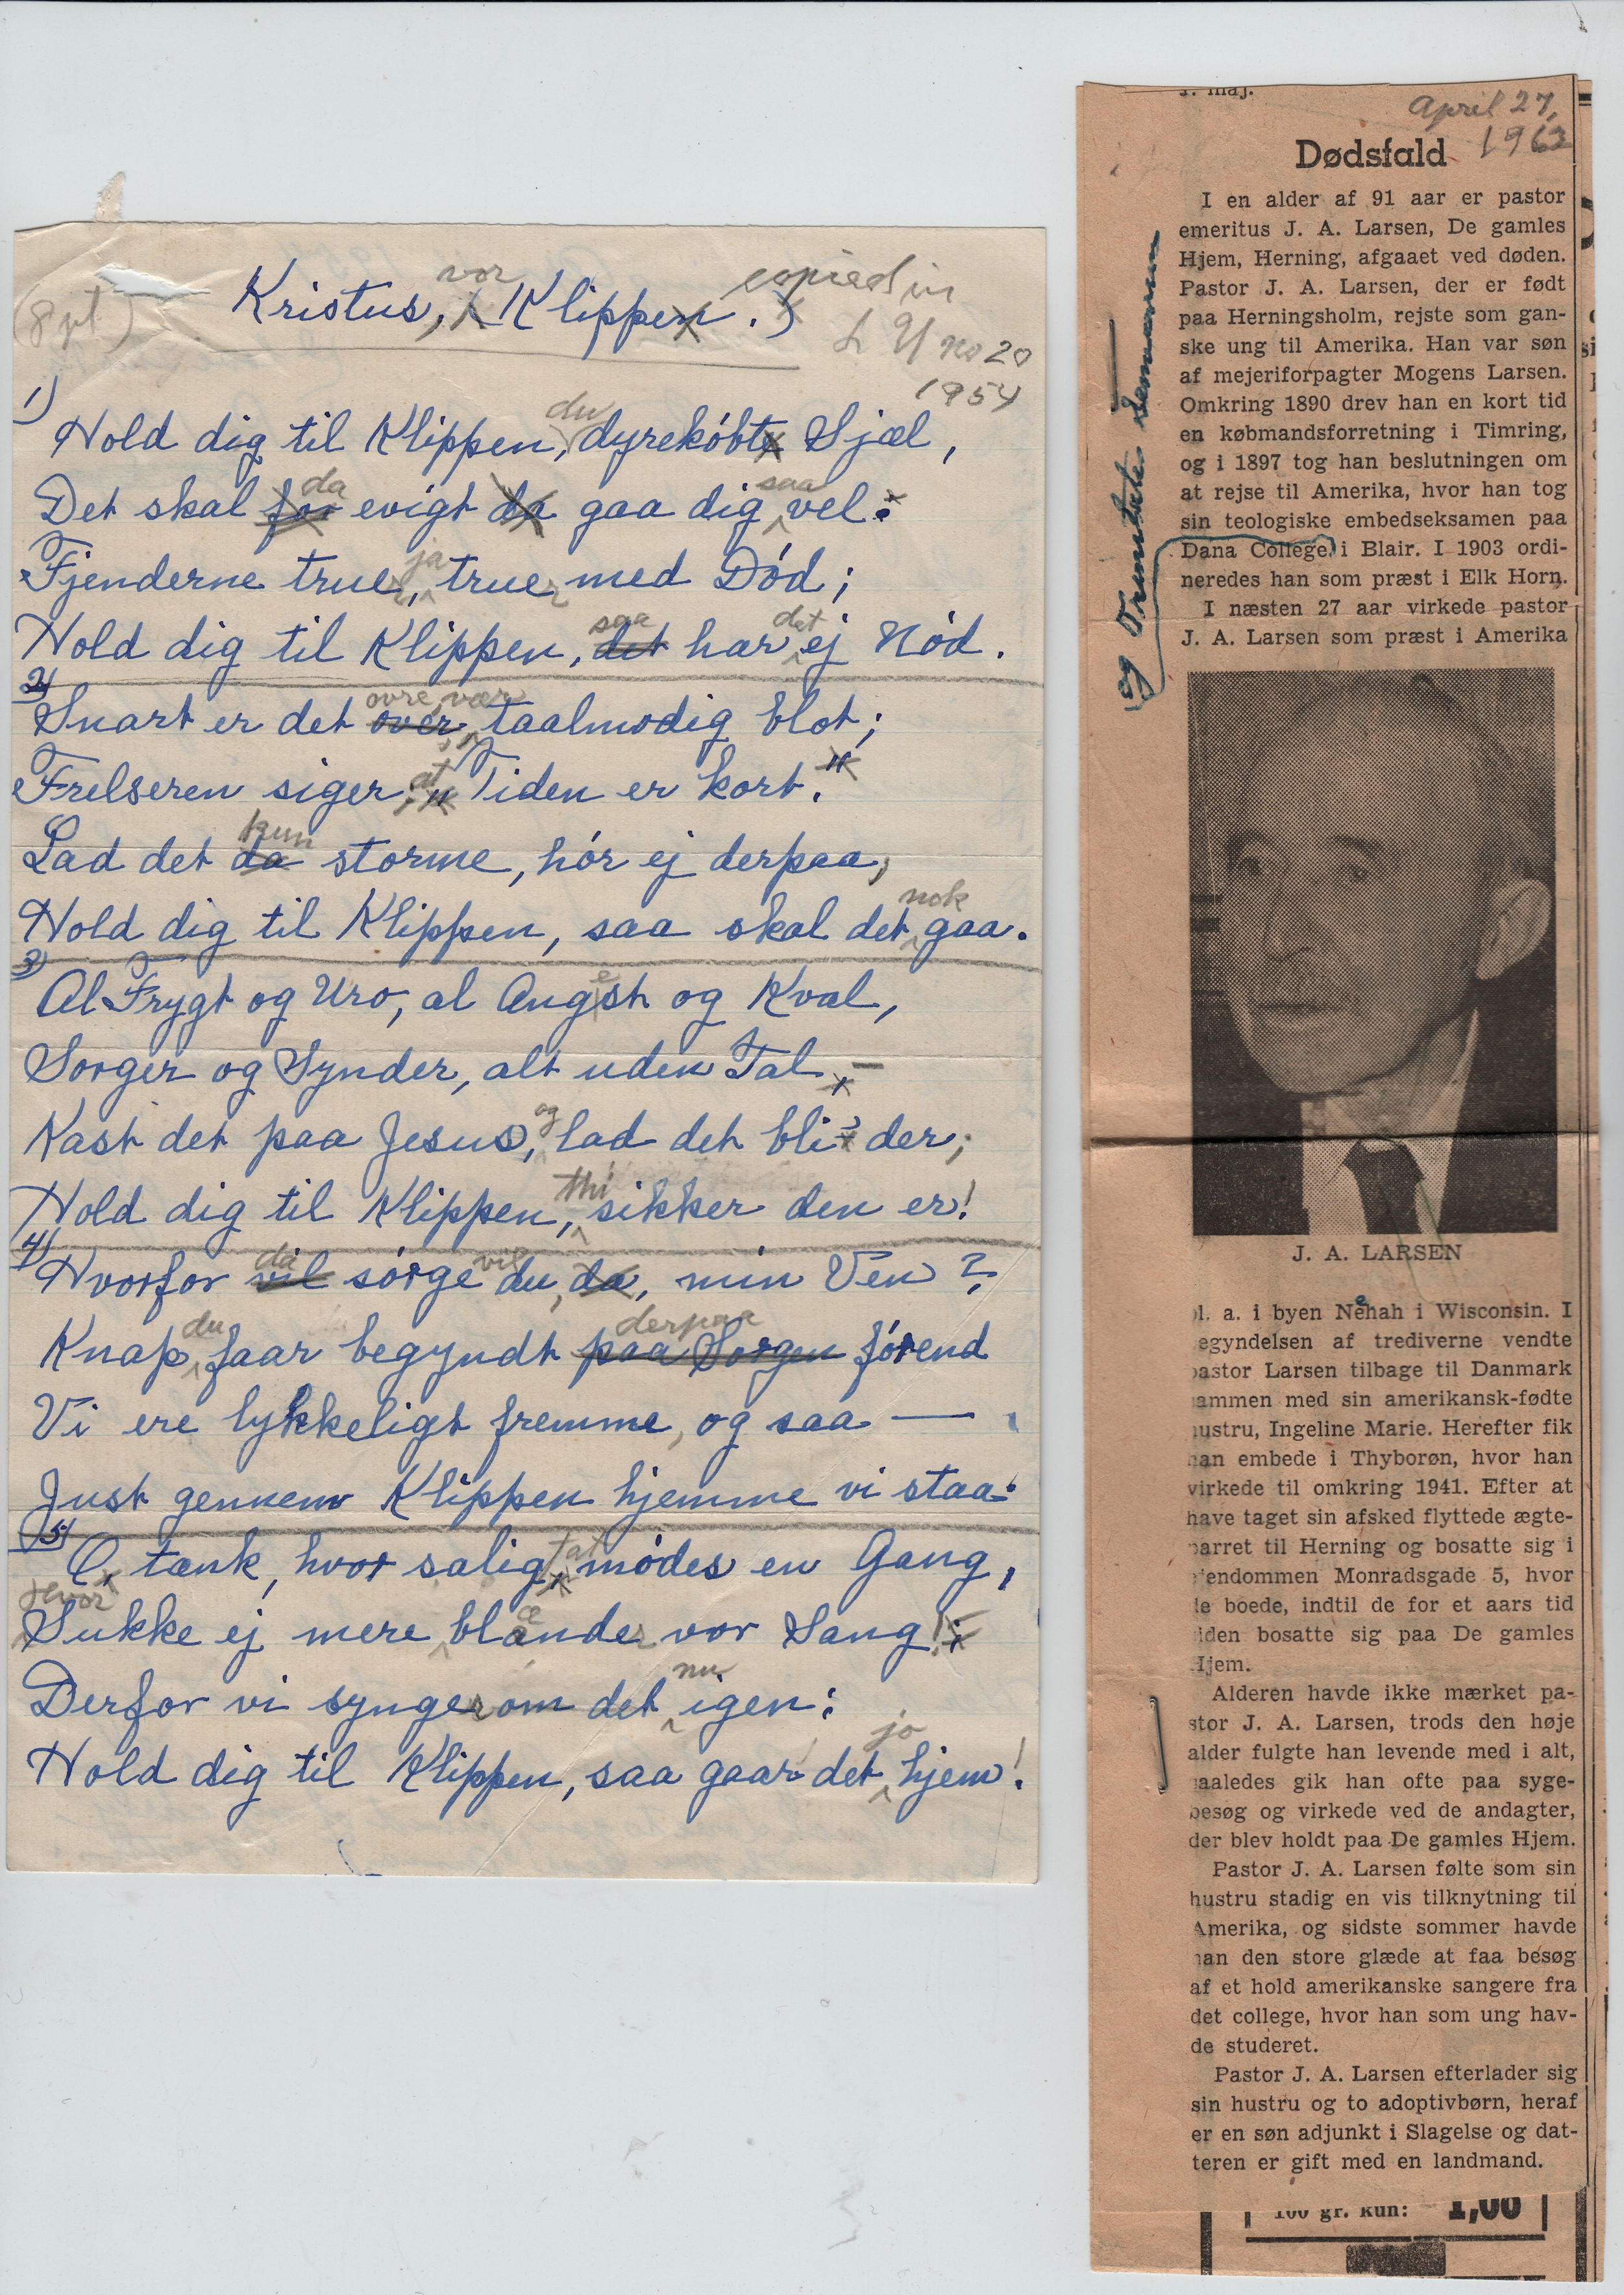 Kristus, vor (Klippen.)
(8 pt)
copied in
L U no 20
1954
1)
Hold dig til Klippen, du dyrekóbte Sjæl,
Det skal for da evigt da gaa dig saa vel:
Fjenderne truer, ja, truer med Dód;
Hold dig til Klippen, det saa har det ej Nód.
2)
Snart er det over ovre, vær taalmodig blot;
Frelseren siger, at „Tiden er kort."
Lad det da kun storme, hór ej derpaa,
Hold dig til Klippen, saa skal det nok gaa.
3)
Al Frygt og Uro, al Angest og Kval,
Sorger og Synder, alt uden Tal, —
Kast det paa Jesus, og lad det bli' der;
Hold dig til Klippen, thi sikker den er!
4)
Hvorfor vil da sórge vil du, da, min Ven?
Knap du faar begyndt paa Sorgen derpaa fórend
Vi ere lykkeligt fremme, og saa —
Just gennem Klippen hjemme vi staa.
5)
O, tænk, hvor salig, at módes en Gang,
Hvor Sukke ej mere blander æ vor Sang!;
Derfor vi synger om det nu igen:
Hold dig til Klippen, saa gaar det jo hjem!
1. maj.
April 27,
1963
Dødsfald
I en alder af 91 aar er pastor
emeritus J. A. Larsen, De gamles
Hjem, Herning, afgaaet ved døden.
Pastor J. A. Larsen, der er født
paa Herningsholm, rejste som gan-
ske ung til Amerika. Han var søn
af mejeriforpagter Mogens Larsen.
Omkring 1890 drev han en kort tid
en købmandsforretning i Timring,
og i 1897 tog han beslutningen om
at rejse til Amerika, hvor han tog
sin teologiske embedseksamen paa
Dana College i Blair. I 1903 ordi-
neredes han som præst i Elk Horn.
I næsten 27 aar virkede pastor
J. A. Larsen som præst i Amerika
og Trinitatis Seminarium
J. A. LARSEN
bl. a. i byen Nehah i Wisconsin. I
begyndelsen af trediverne vendte
pastor Larsen tilbage til Danmark
sammen med sin amerikansk-fødte
hustru, Ingeline Marie. Herefter fik
han embede i Thyborøn, hvor han
virkede til omkring 1941. Efter at
have taget sin afsked flyttede ægte-
parret til Herning og bosatte sig i
ejendommen Monradsgade 5, hvor
de boede, indtil de for et aars tid
siden bosatte sig paa De gamles
Hjem.
Alderen havde ikke mærket pa-
stor J. A. Larsen, trods den høje
alder fulgte han levende med i alt,
saaledes gik han ofte paa syge-
besøg og virkede ved de andagter,
der blev holdt paa De gamles Hjem.
Pastor J. A. Larsen følte som sin
hustru stadig en vis tilknytning til
Amerika, og sidste sommer havde
han den store glæde at faa besøg
af et hold amerikanske sangere fra
det college, hvor han som ung hav-
de studeret.
Pastor J. A. Larsen efterlader sig
sin hustru og to adoptivbørn, heraf
er en søn adjunkt i Slagelse og dat-
teren er gift med en landmand.
100 gr. kun: 1,00